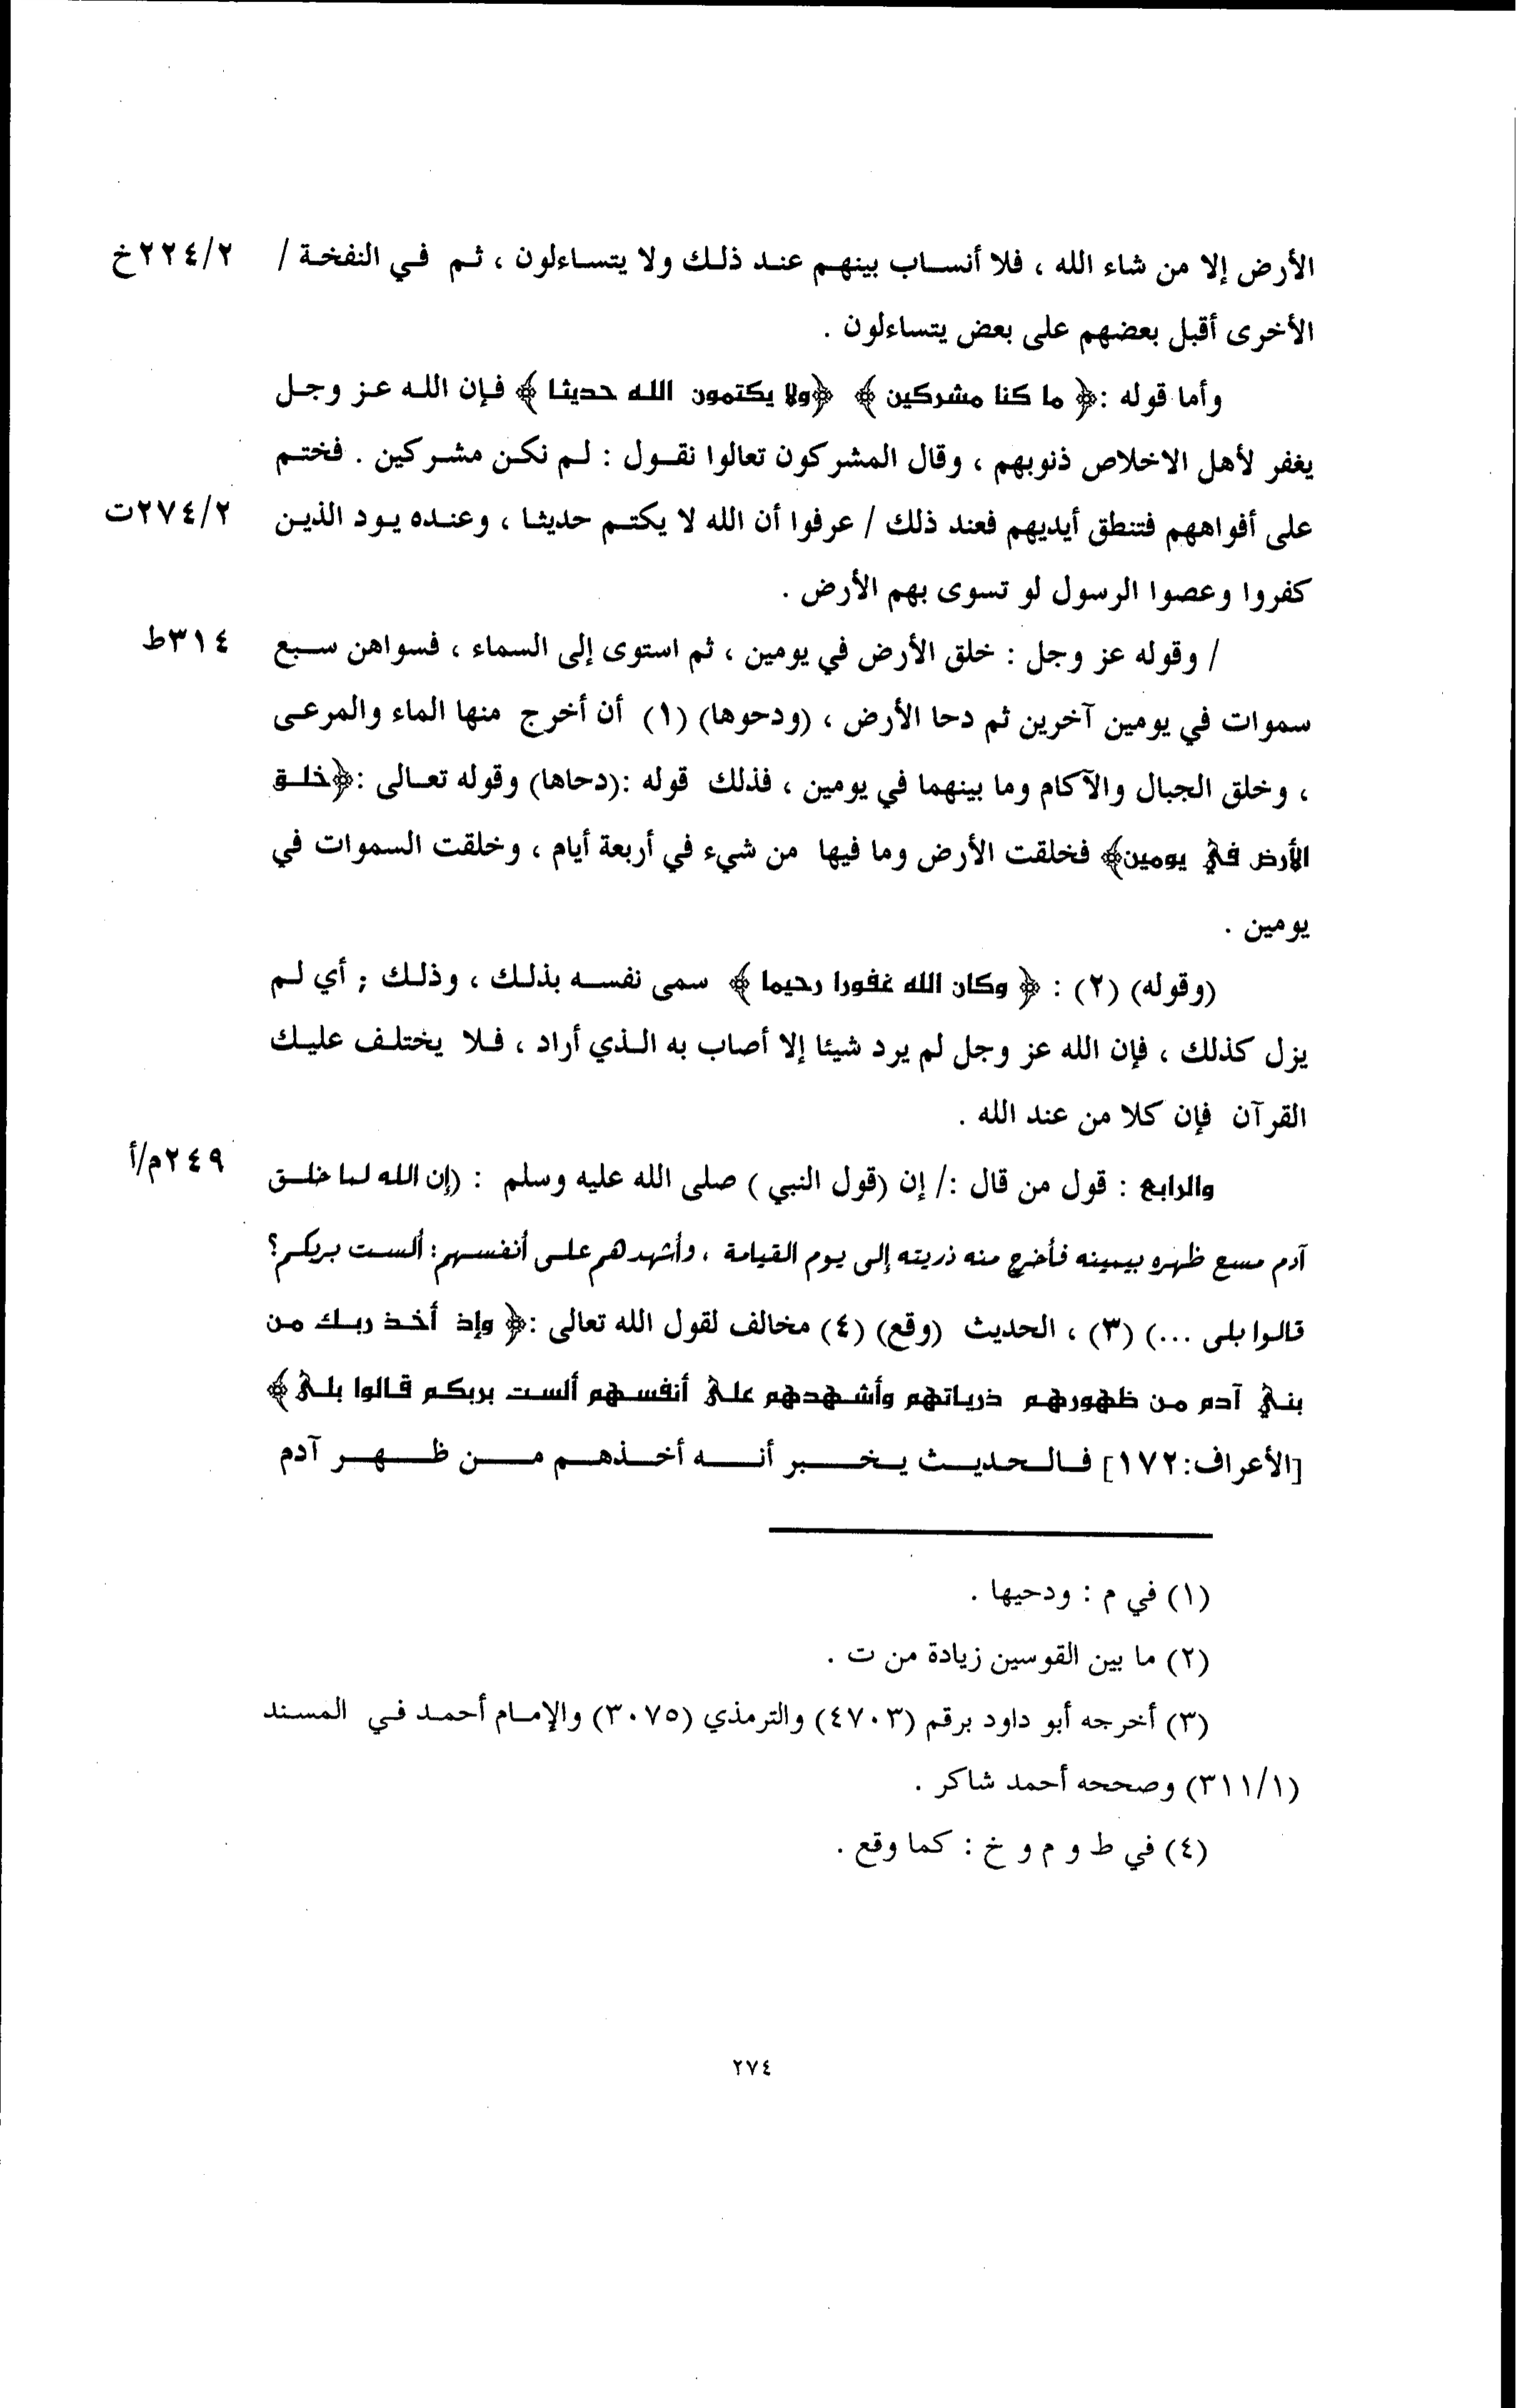 الأرض إلا من شاء الله ، فلا أنساب بينهم عند ذلك ولا يتساءلون ، ثم في النفخة / ٢٢٤/٢خ
الأخرى أقبل بعضهم على بعض يتساءلون .
وأما قوله :﴿ ما كنا مشركين ﴾ ﴿ولا يكتمون الله حديثا ﴾ فإن الله عز وجل
يغفر لأهل الاخلاص ذنوبهم ، وقال المشركون تعالوا نقول : لم نكن مشركين . فختم
على أفواههم فتنطق أيديهم فعند ذلك / عرفوا أن الله لا يكتم حديثا ، وعنده يود الذين ٢٧٤/٢ت
كفروا وعصوا الرسول لو تسوى بهم الأرض .
/ وقوله عز وجل : خلق الأرض في يومين ، ثم استوى إلى السماء ، فسواهن سبع ٣١٤ط
سموات في يومين آخرين ثم دحا الأرض ، (ودحوها) (١) أن أخرج منها الماء والمرعى
، وخلق الجبال والآكام وما بينهما في يومين ، فذلك قوله :(دحاها) وقوله تعالى :﴿خلق
الأرض في يومين﴾ فخلقت الأرض وما فيها من شيء في أربعة أيام ، وخلقت السموات في
يومين .
(وقوله) (٢) : ﴿ وكان الله غفورا رحيما ﴾ سمى نفسه بذلك ، وذلك ; أي لم
يزل كذلك ، فإن الله عز وجل لم يرد شيئا إلا أصاب به الذي أراد ، فلا يختلف عليك
القرآن فإن كلا من عند الله .
والرابع : قول من قال :/ إن (قول النبي ) صلى الله عليه وسلم : (إن الله لما خلق ٢٤٩م/أ
آدم مسح ظهره بيمينه فأخرج منه ذريته إلى يوم القيامة ، وأشهدهم على أنفسهم: ألست بربكم؟
قالوا بلى ...) (٣) ، الحديث (وقع) (٤) مخالف لقول الله تعالى :﴿ وإذ أخذ ربك من
بني آدم من ظهورهم ذرياتهم وأشهدهم على أنفسهم ألست بربكم قالوا بلى ﴾
[الأعراف:١٧٢] فالحديث يخبر أنه أخذهم من ظهر آدم
(١) في م : ودحيها .
(٢) ما بين القوسين زيادة من ت .
(٣) أخرجه أبو داود برقم (٤٧٠٣) والترمذي (٣٠٧٥) والإمام أحمد في المسند
(٣١١/١) وصححه أحمد شاكر .
(٤) في ط و م و خ : كما وقع .
٢٧٤